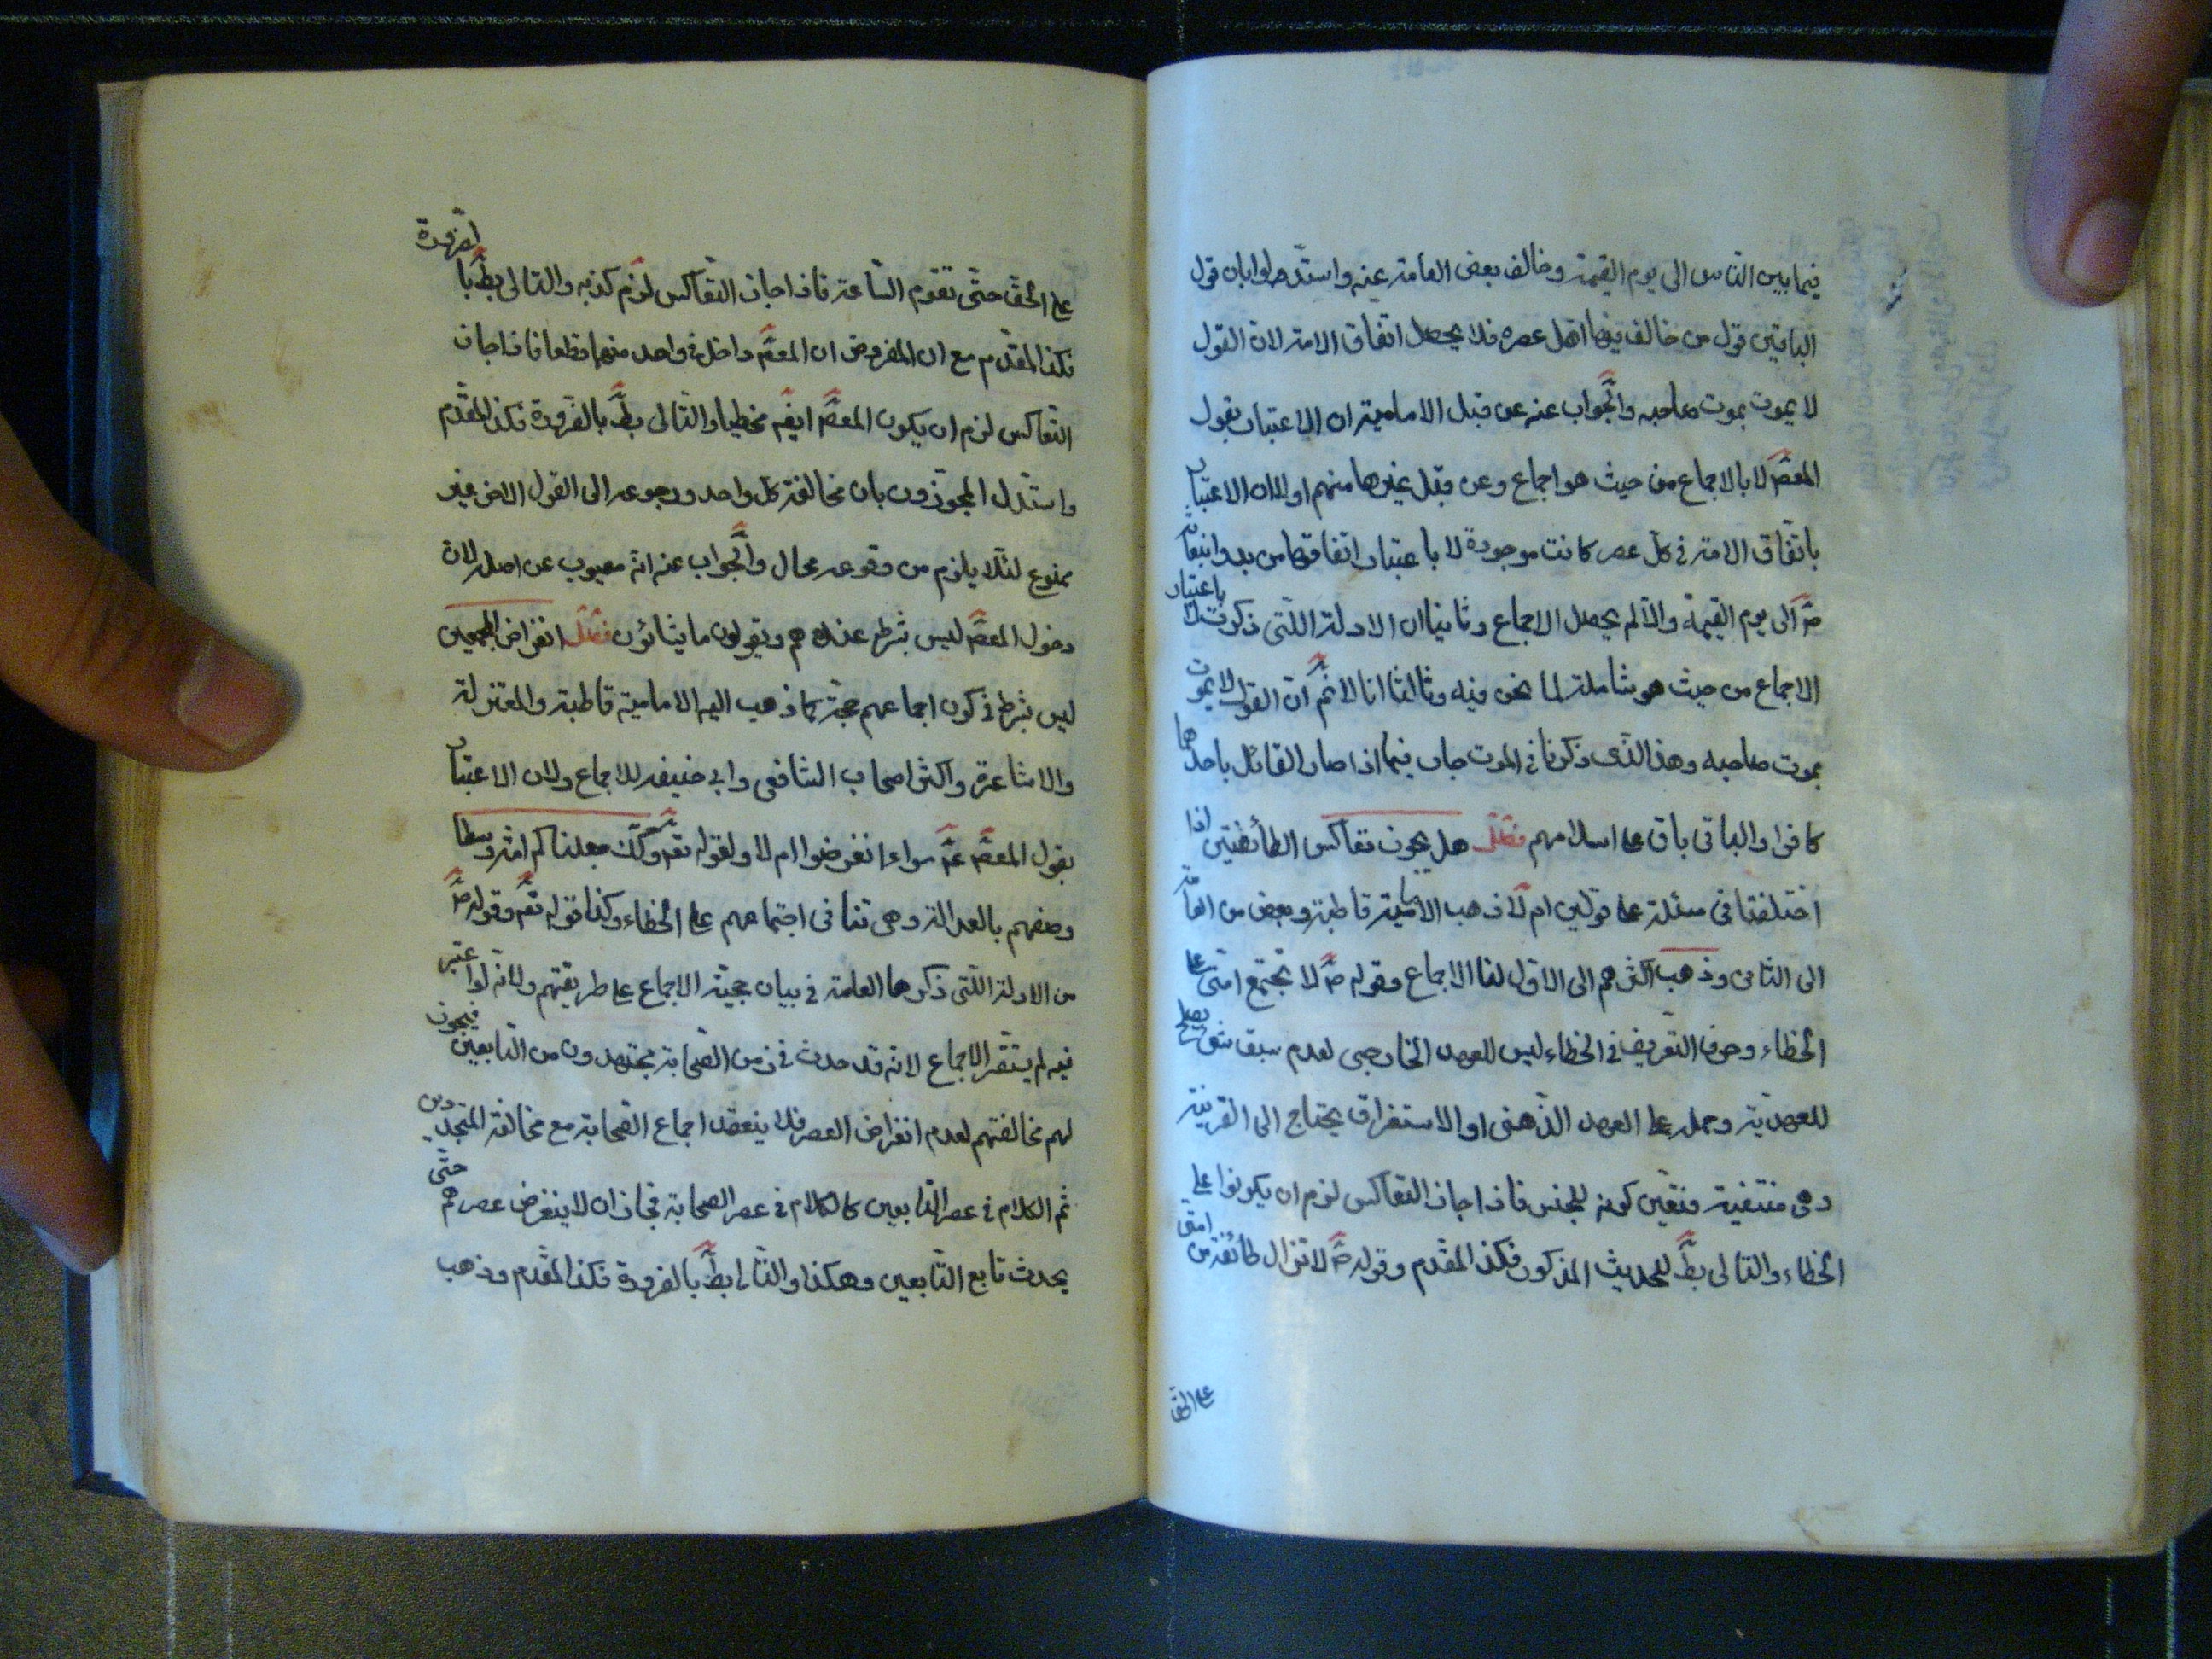 فيما بين الناس الى يوم القيمة وخالف بعض العامة عنه واستدلوا بان قول
الباقين قول من خالف فيها اهل عصره فلا يحصل اتفاق الامة لان القول
لا يموت بموت صاحبه والجواب عنه عن قبل الامامية ان الاعتبار بقول
المعصّ لا بالاجماع من حيث هو اجماع وعن قبل غيرها منهم اولا ان الاعتبار
باتفاق الامة في كل عصر كانت موجودة لا باعتبار اتفاقها من بدو
صّ الى يوم القيمة والا لم يحصل الاجماع وثانيا ان الادلة اللتى ذكرت لا باعتبار
الاجماع من حيث هو شاملة لما نحن فيه وثالثا انا لا نمّ ان القول لا يموت
بموت صاحبه وهذا الذى ذكرنا في الموت جار فيما اذا صار القائل باحدهما
كافرا والباقى باق على اسلامهم فصل هل يجوز تعاكس الطائفتين اذا
اختلفتا فى مسئلة على قولين ام لا ذهب الامامية قاطبة وبعض من العامة
الى الثانى وذهب اكثرهم الى الاول لنا الاجماع وقوله صّ لا تجتمع امتى على
الخطاء وحرف التعريف فى الخطاء ليس للعهد الخارجى لعدم سبق شئ يصلح
للعهدية وحمله على العهد الذهنى او الاستغراق يحتاج الى القرينة
وهى منتفية فتعين كونه للجنس فاذا جاز التعاكس لزم ان يكونوا على
الخطاء والتالى بطّ للحديث المذكور فكذا المقدم وقوله صّ لا تزال طائفة من امتى
على الحق
على الحق حتى تقوم الساعة فاذا جاز التعاكس لزم كذبه والتالى بطّ بالضرورة
فكذا المقدم مع ان المفروض ان المعصّ داخل في واحد منهما قطعا فاذا جاز
التعاكس لزم ان يكون المعصّ ايضّ مخطيا والتالى بطّ بالضرورة فكذا المقدم
واستدل المجوزون بان مخالفة كل واحد ورجوعه الى القول الاخر غير
ممنوع لئلا يلزم من وقوعه محال والجواب عنه انه معيوب عن اصله لان
دخول المعصّ ليس بشرط عندهم ويقولون ما يشاؤن فصل انقراض المجمعين
ليس بشرط في كون اجماعهم حجة كما ذهب اليه الامامية قاطبة والمعتزلة
والاشاعرة واكثر اصحاب الشافعى وابى حنيفه للاجماع ولان الاعتبار
بقول المعصّ عمّ سواء انقرضوا ام لا ولقوله تعّ وكذلك جعلناكم امة وسطا
وصفهم بالعدالة وهى تنافى اجتماعهم على الخطاء وكذا قوله تعّ وقوله صّ
من الادلة اللتى ذكرها العامة في بيان حجية الاجماع على طريقتهم ولانه لو اعتبر
فيه لم يستقر الاجماع لانه قد حدث في زمن الصحابة مجتهدون من التابعين فيجوز
لهم مخالفتهم لعدم انقراض العصر فلا ينعقد اجماع الصحابة مع مخالفة المتجددين
ثم الكلام في عصر التابعين كالكلام في عصر الصحابة فجاز ان لا ينقرض عصرهم حتى
يحدث تابع التابعين وهكذا والتالى بطّ بالضرورة فكذا المقدم وذهب